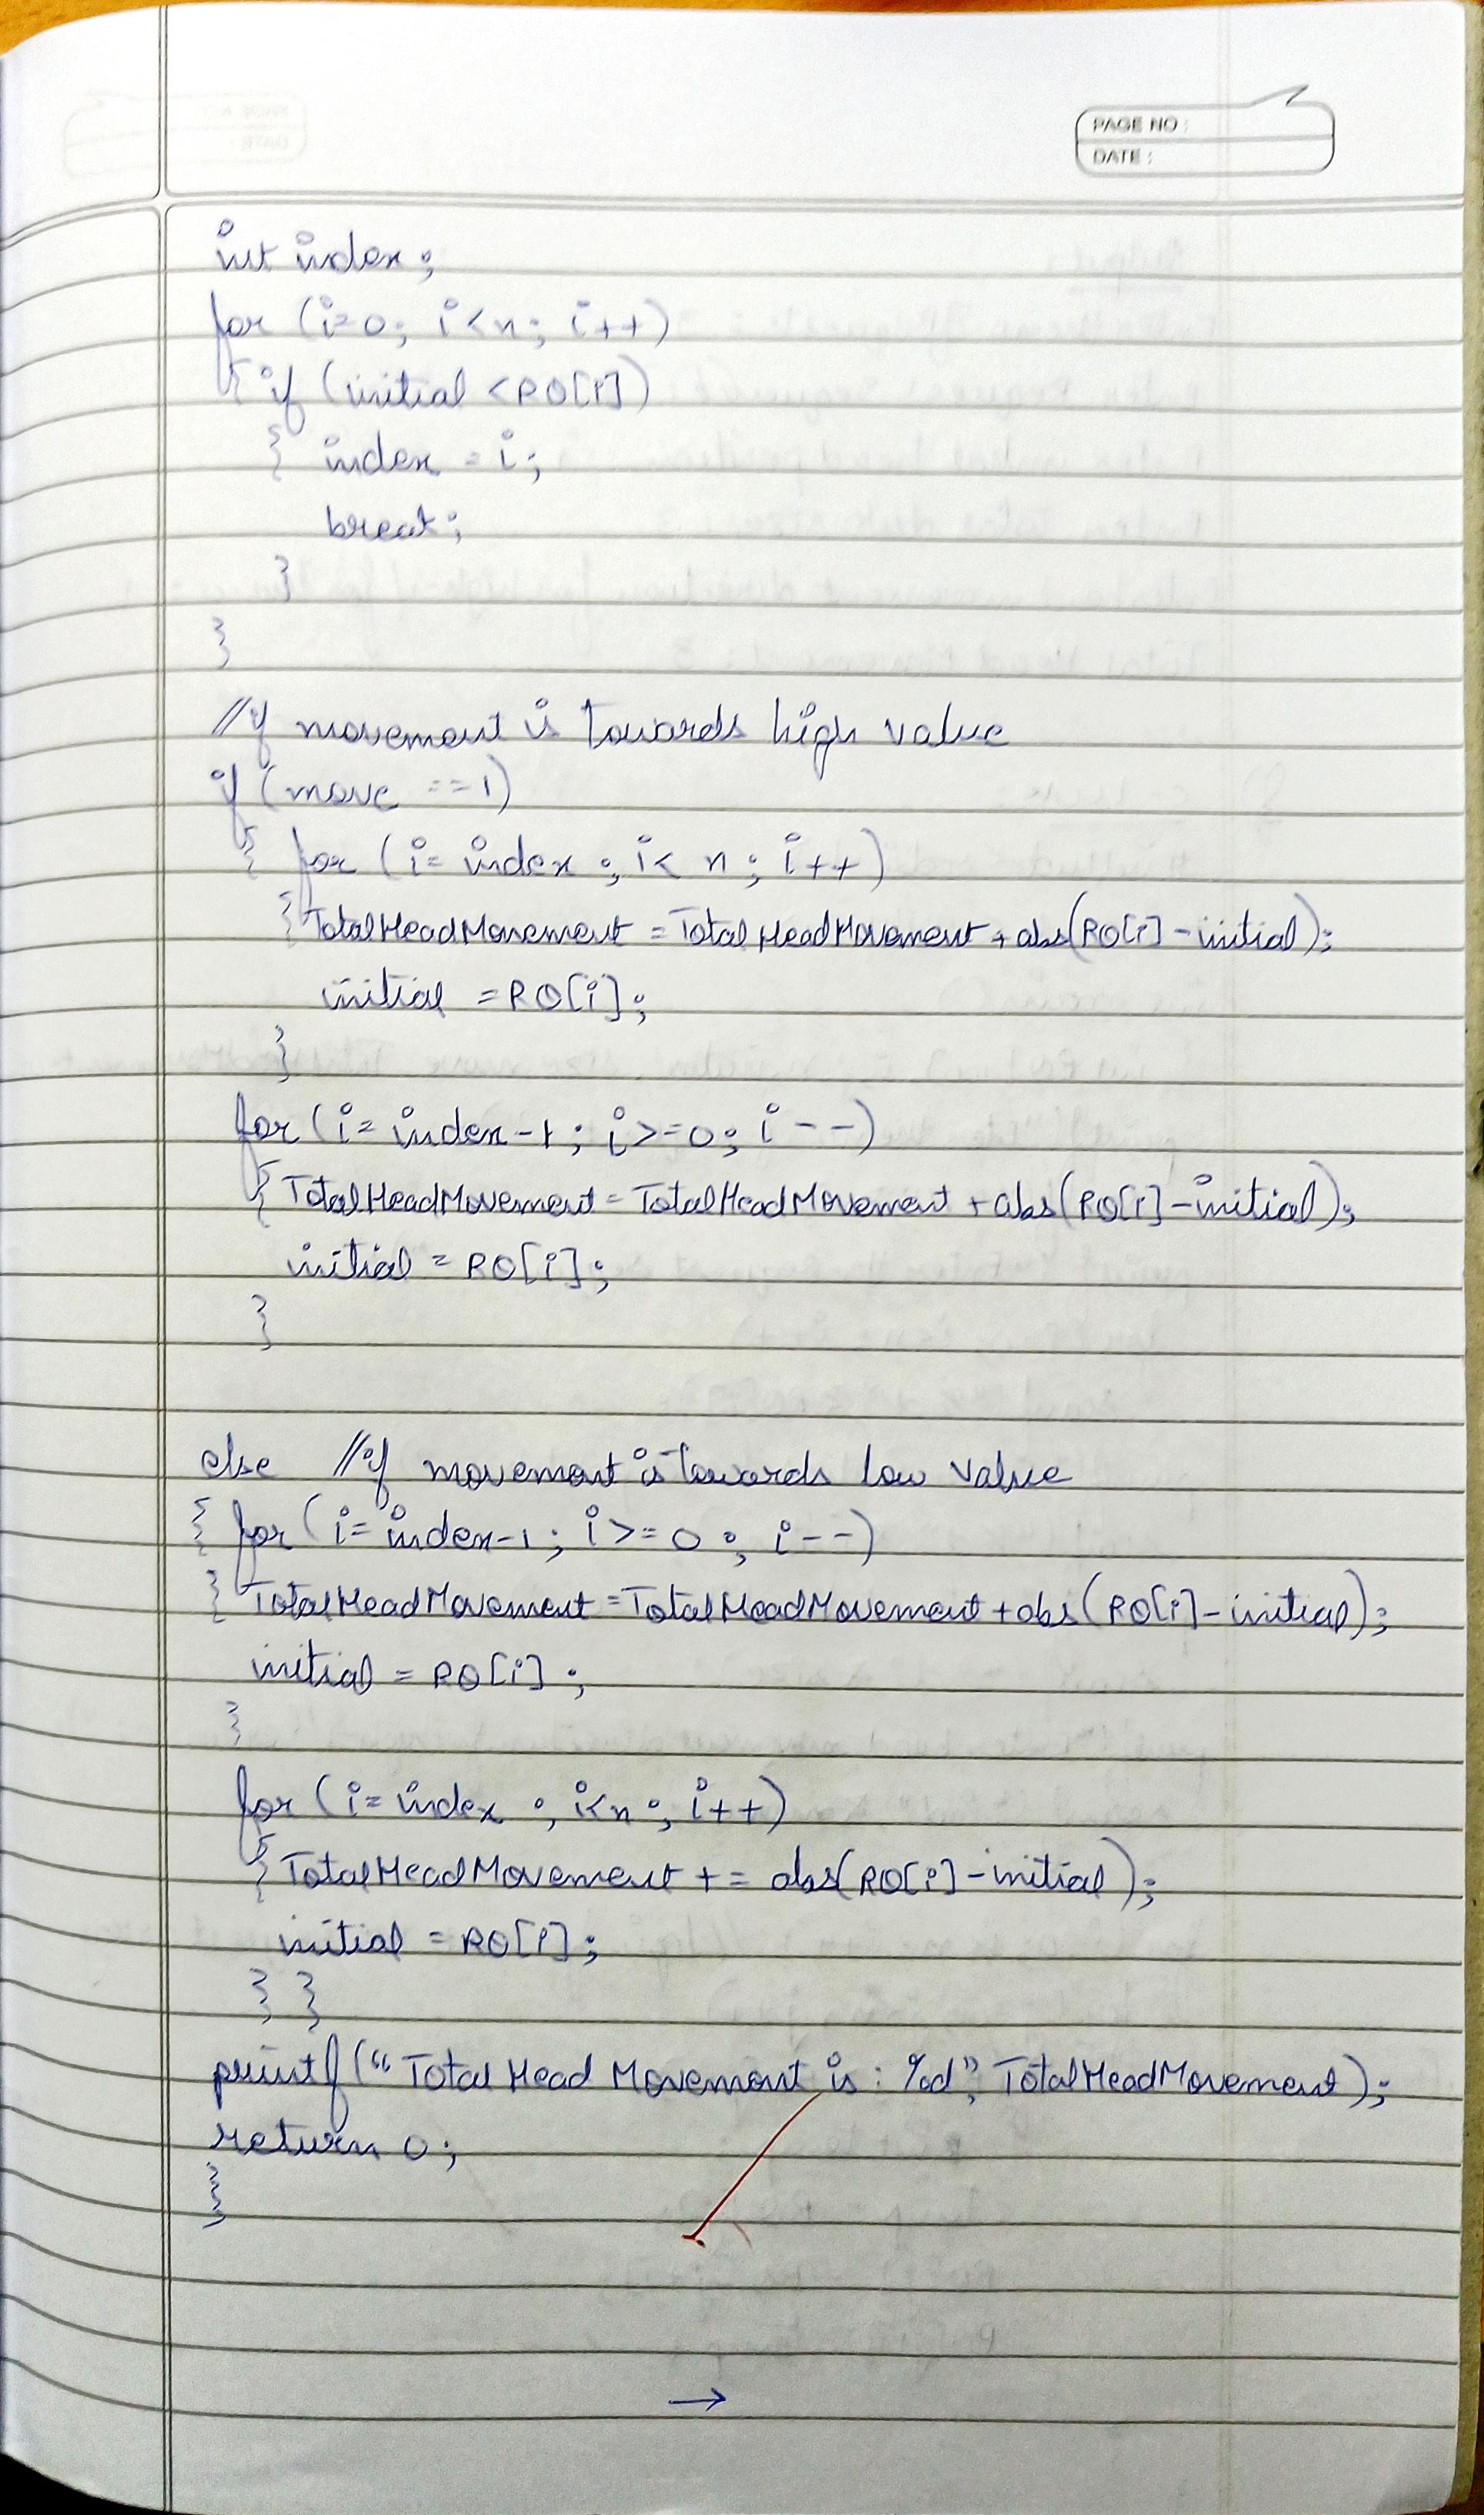 PAGE NO :
DATE :
int index ;
for (i=0; i<n; i++)
{ if (initial < RQ[i])
{ index = i;
break;
}
}
//if movement is towards high value
if (move ==1)
{ for (i= index ; i< n ; i++)
{ TotalHeadMovement = TotalHeadMovement + abs(RQ[i] - initial);
initial = RQ[i];
}
for (i= index-1 ; i>=0; i--)
{ TotalHeadMovement = TotalHeadMovement + abs(RQ[i] - initial);
initial = RQ[i];
}
else //if movement is towards low value
{ for (i= index-1 ; i>=0 ; i--)
{ TotalHeadMovement = TotalHeadMovement + abs(RQ[i] - initial);
initial = RQ[i] ;
}
for (i= index ; i<n ; i++)
{ TotalHeadMovement += abs(RQ[i] - initial);
initial = RQ[i];
} }
printf("Total Head Movement is : %d", TotalHeadMovement);
return 0;
}
→